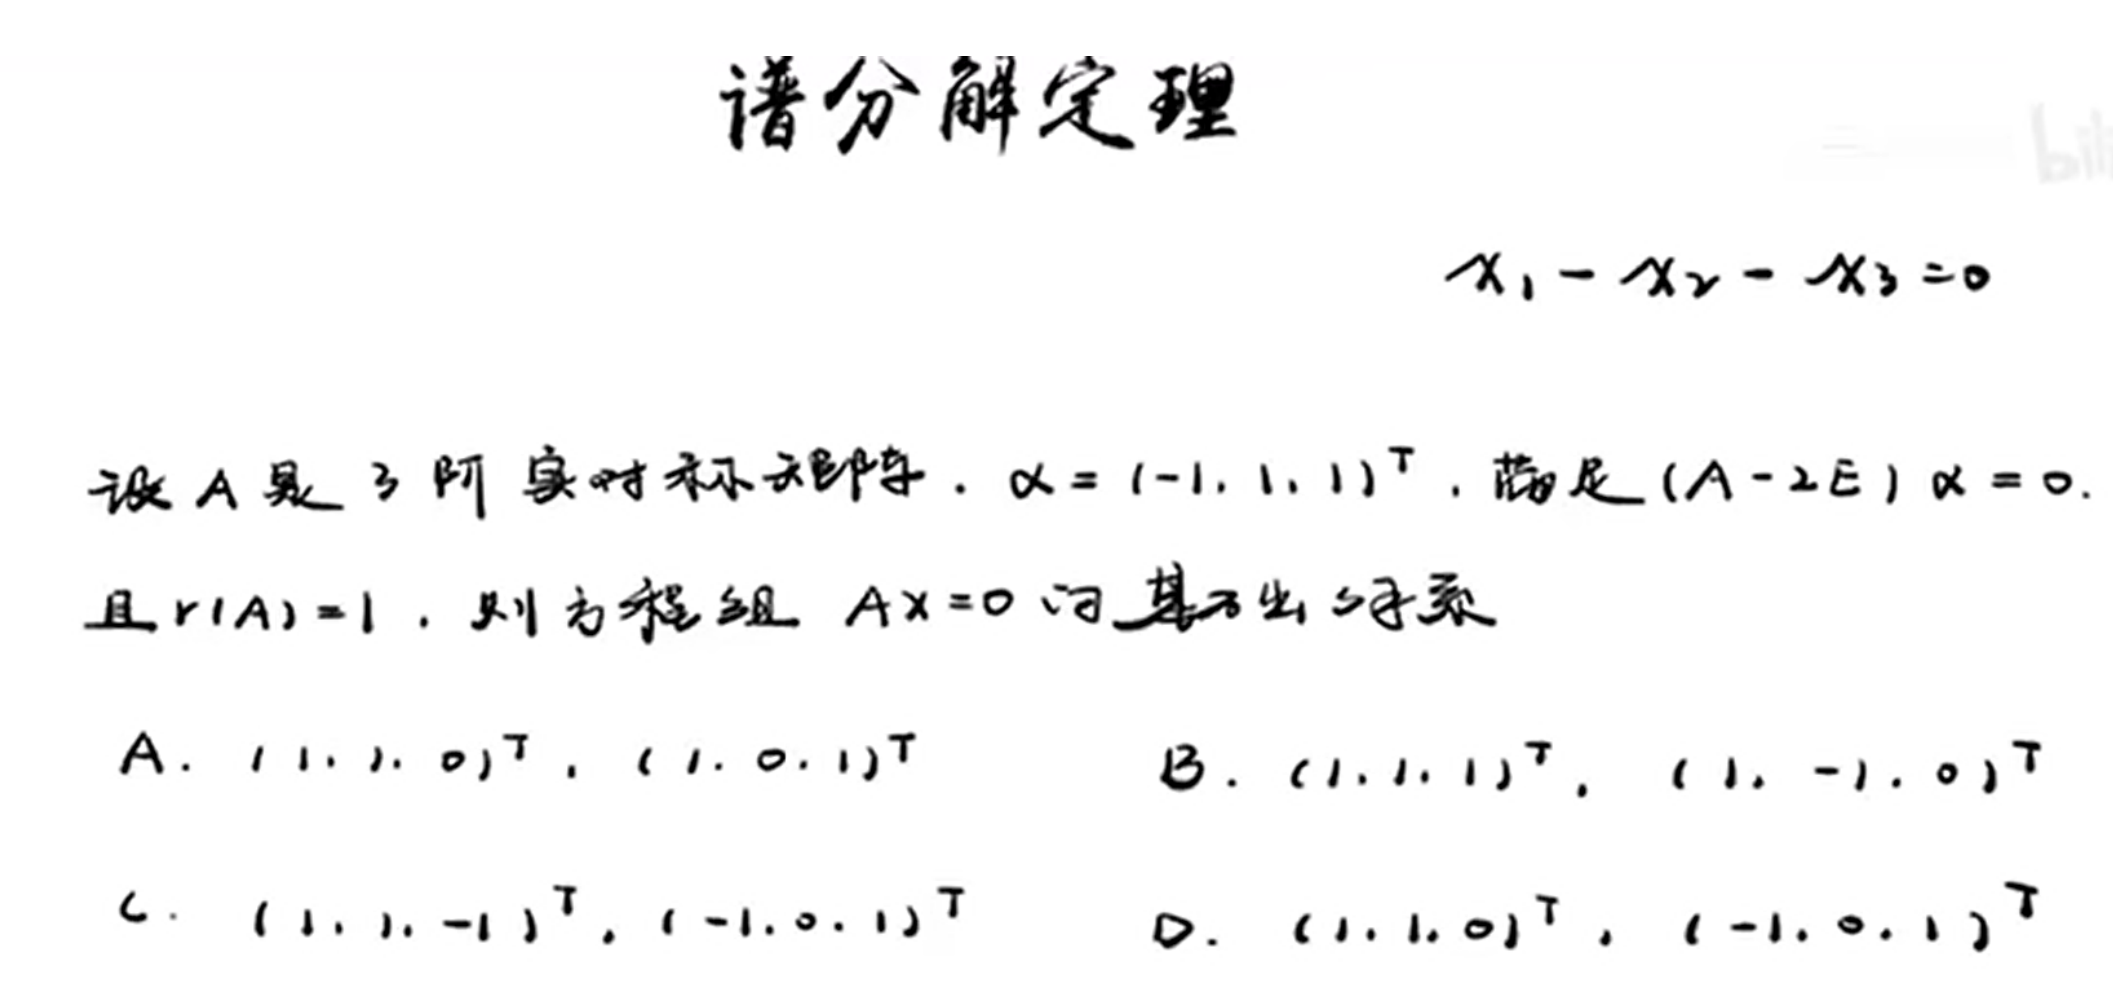 谱分解定理
bili
x₁ - x₂ - x₃ = 0
设 A 是 3 阶 实对称矩阵. α = (-1, 1, 1)ᵀ, 满足 (A - 2E) α = 0.
且 r(A) = 1, 则方程组 AX = 0 的基础解系
A. (1, 1, 0)ᵀ, (1, 0, 1)ᵀ B. (1, 1, 1)ᵀ, (1, -1, 0)ᵀ
C. (1, 1, -1)ᵀ, (-1, 0, 1)ᵀ D. (1, 1, 0)ᵀ, (-1, 0, 1)ᵀ